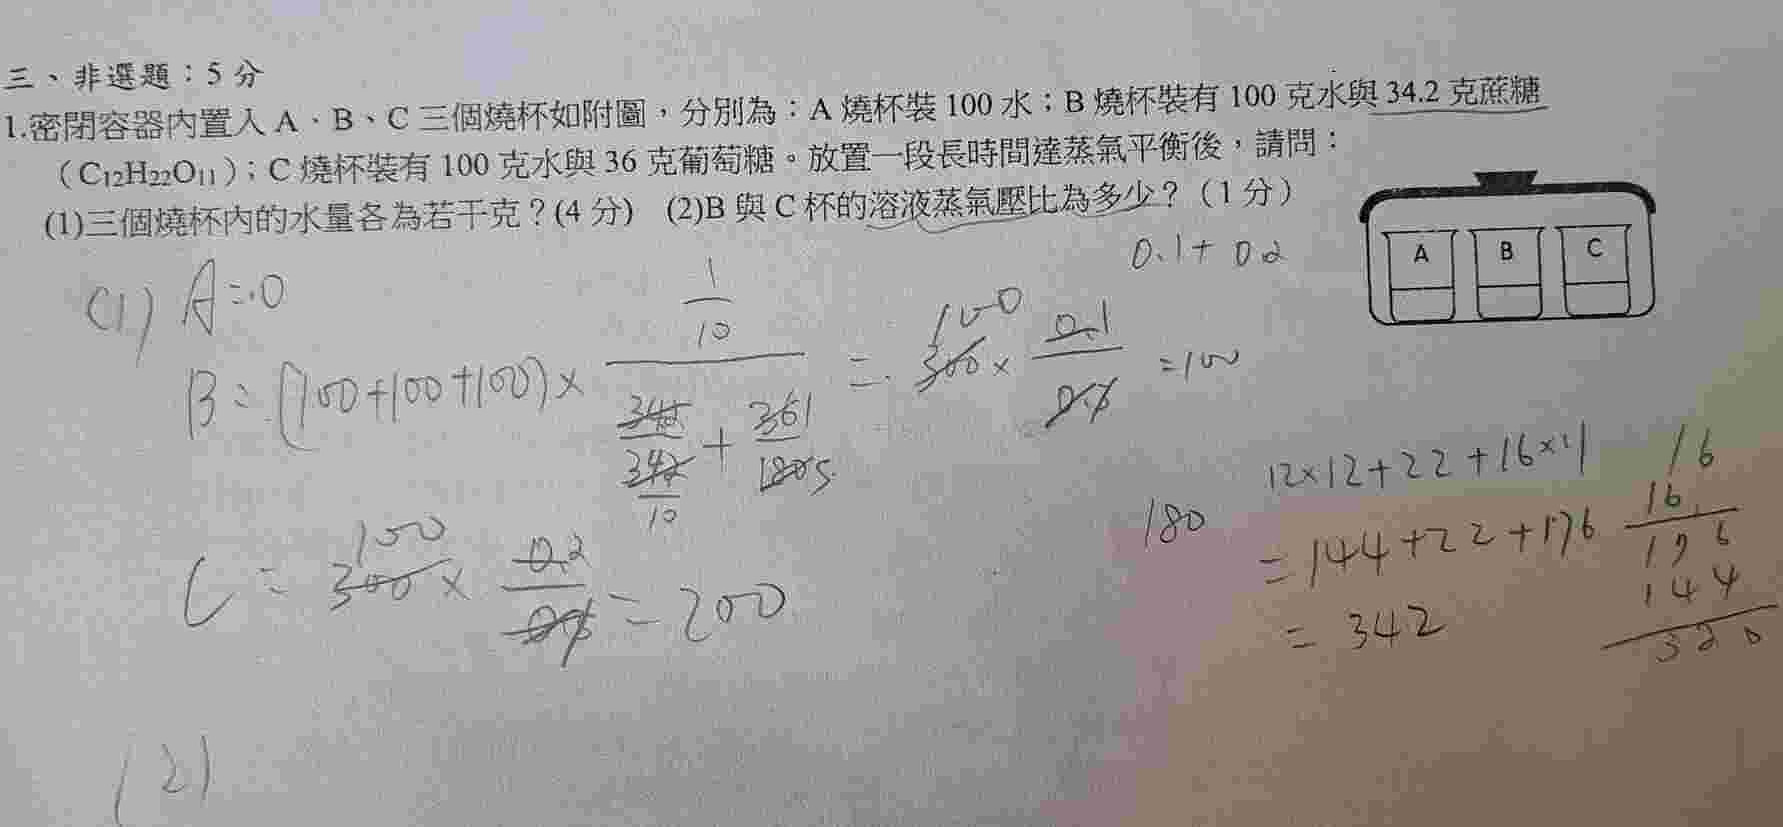 三、非選題：5 分
1.密閉容器內置入 A、B、C 三個燒杯如附圖，分別為：A 燒杯裝 100 水；B 燒杯裝有 100 克水與 34.2 克蔗糖
（C12H22O11）；C 燒杯裝有 100 克水與 36 克葡萄糖。放置一段長時間達蒸氣平衡後，請問：
(1)三個燒杯內的水量各為若干克？(4 分) (2)B 與 C 杯的溶液蒸氣壓比為多少？（1 分）
A B C
0.1+ 0.2
(1) A=0
B= (100+100+100)×
1
10
342
342
10
+
361
1805
= 300
100
×
0.1
= 100
C = 300
100
×
0.2
= 200
180
12×12+22+16×11
=144+22+176
= 342
16
16
176
144
320
(2)